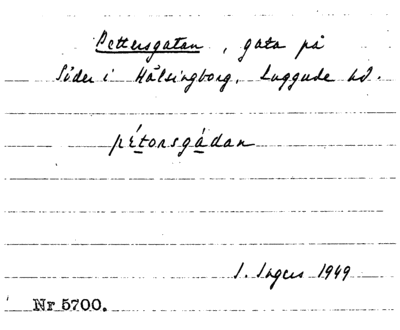 Pettersgatan, gata på
Söder i Hälsingborg, Luggude hd.
pétorsgádan
I. Ingers 1949
Nr 5700.